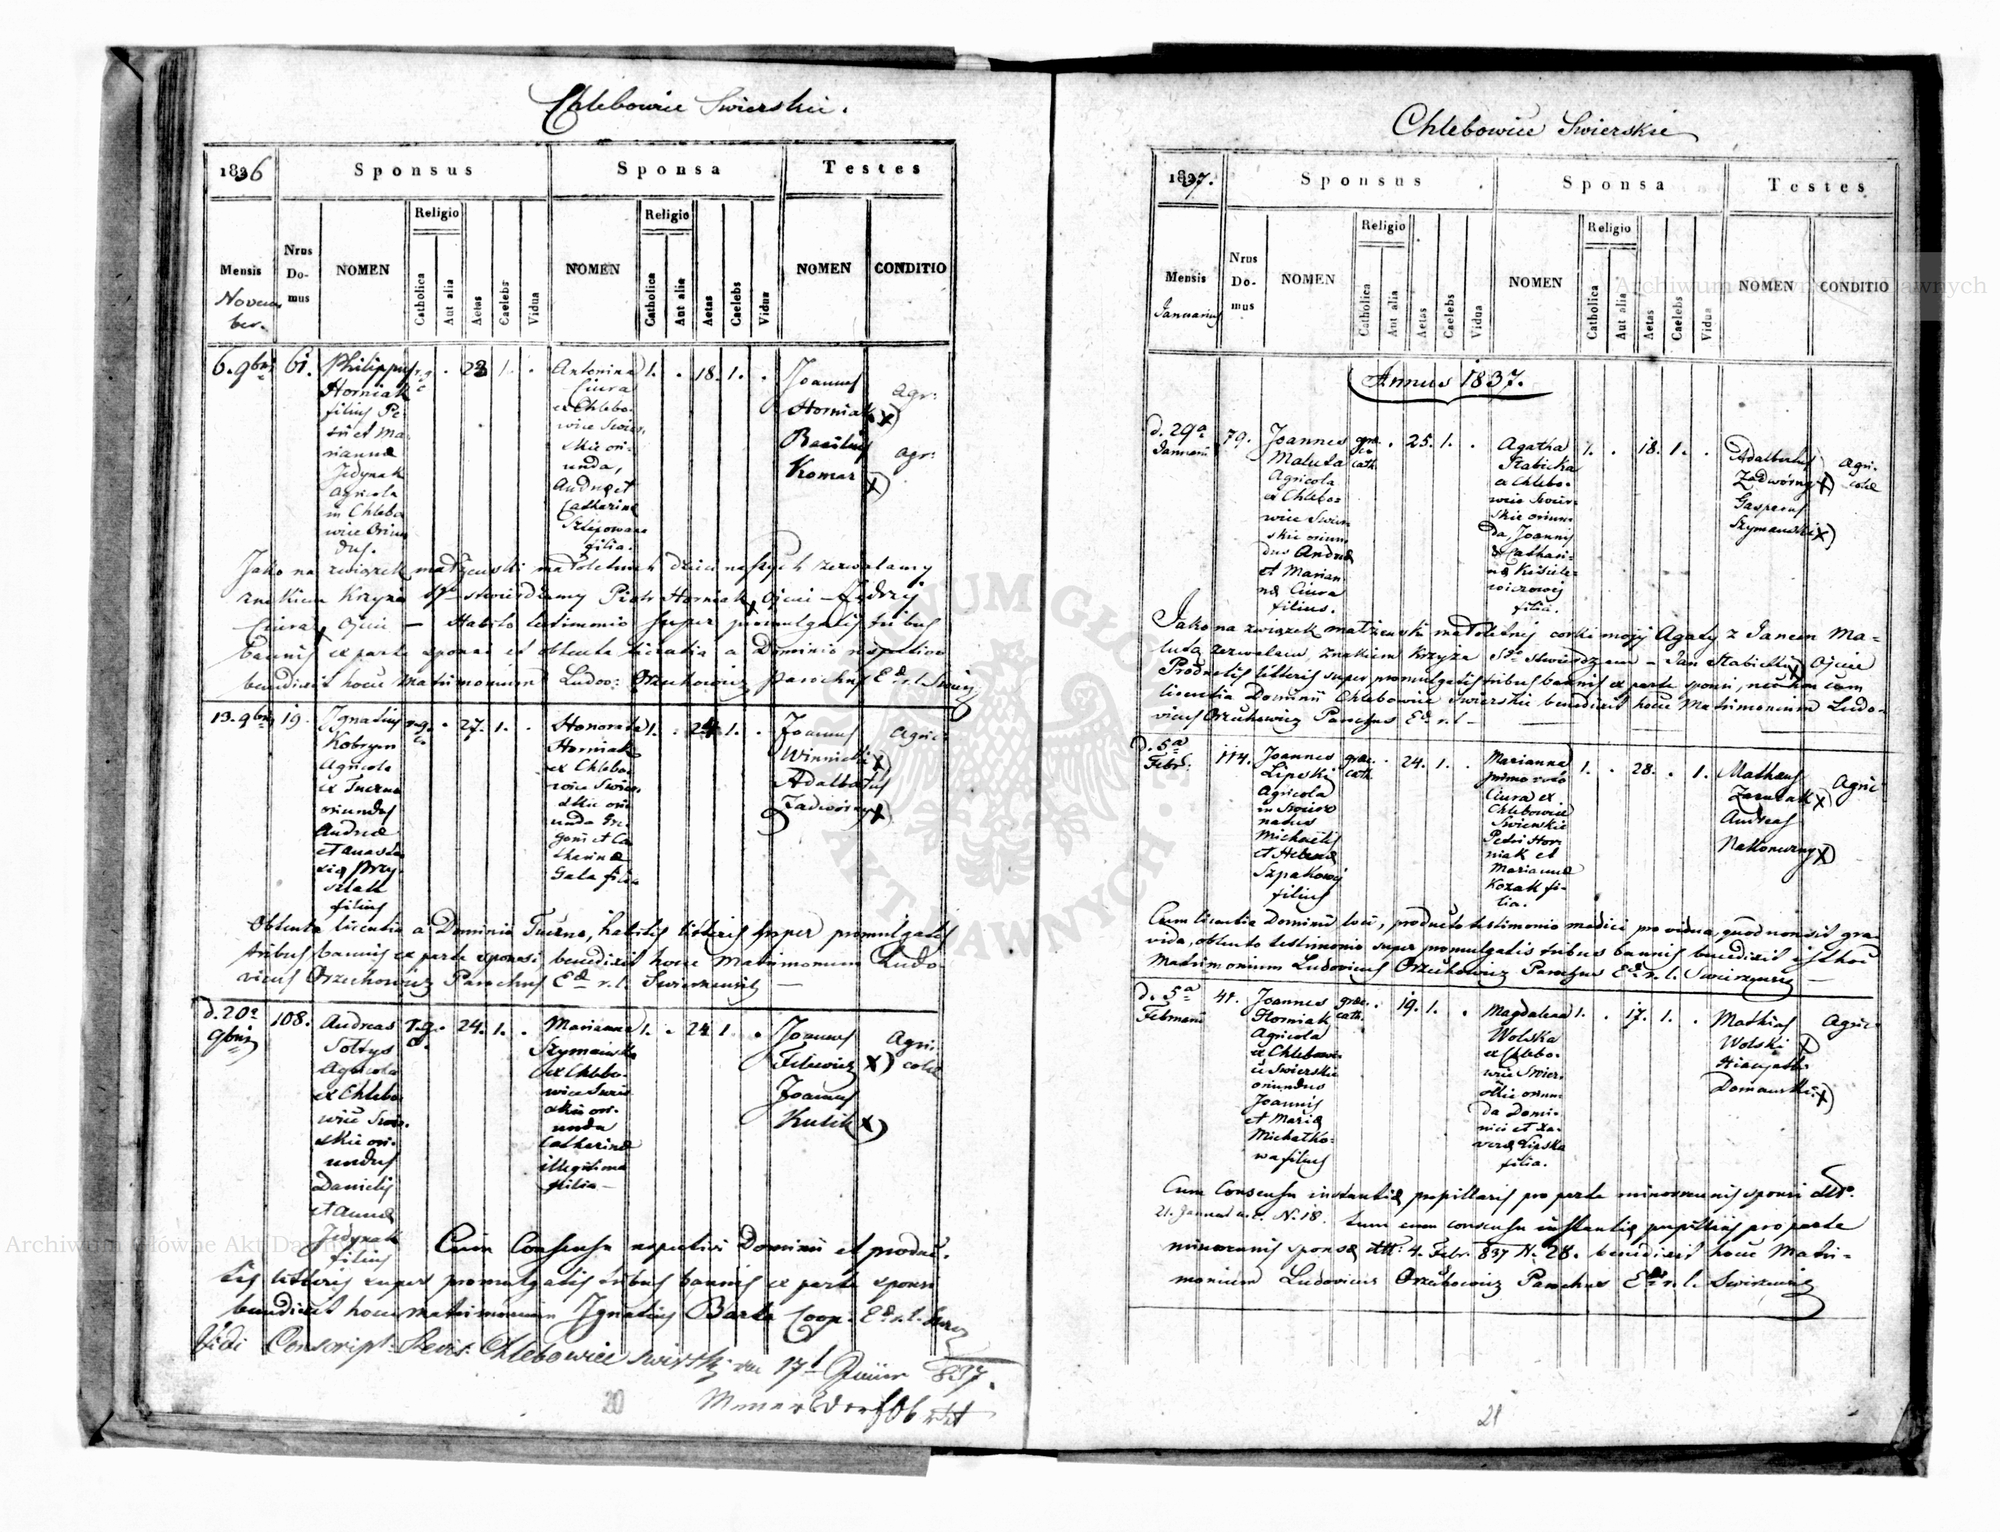 Chlebowice Swierskie.
1836
Sponsus
Sponsa
Testes
Mensis
Novem
ber.
Nrus
Do-
mus
NOMEN
Religio
Catholica
Aut alia
Aetas
Caelebs
Vidua
NOMEN
Religio
Catholica
Aut alia
Aetas
Caelebs
Vidua
NOMEN
CONDITIO
6. 9bris
61.
Philippus
Horniak
filius Pe-
tri et Ma-
rianna
Jedynak
agricola
in Chlebo
wice Oriun
dus.
r. g.
c
1.
Antonina
Ciura
ex Chlebo-
wice Swier-
skie ori-
unda,
Andr. et
Catharina
filia.
1.
18.
1.
Joannes
Horniak X)
Basilius
Komar X)
agr:
agr:
Jako na związek małżeński małoletnich dzieci naszych zezwalamy
znakiem krzyża Sgo stwierdzamy Piotr Horniak X Ojciec – Jędrzej
Ciura X Ojciec – Habito testimonio super promulgatis tribus
bannis ex parte sponsi et obtenta licentia a Dominio
benedixit hocce Matrimonium Ludov: Orzechowicz parochus
13. 9bris
19.
Ignatius
Kobryn
Agricola
ex Tuczna
oriundus
Andreae
et Anasta
sia Przy
sztak
filius
r. g.
c.
27.
1.
Honorata
Horniak
ex Chlebo
wice Swier
skie ori
unda Gre
gorii et Ca
tharina
Gala filia
1.
24
1.
Joannes
Winnicki X)
Adalbertus
Zadworny X)
Agric:
Obtenta licentia a Dominio Tuczna, habitis litteris super promulgatis
tribus bannis ex parte sponsi, benedixit hocce Matrimonium Ludo
vicus Orzechowicz Parochus
d. 20a
9bris
108.
Andreas
Sołtys
Agricola
ex Chlebo
wice Swier
skie ori-
undus
Danielis
et Anna
Jedynak
filius
r. g.
c.
24.
1.
Marianna
Szymańska
ex Chlebo
wice Swier
skie ori-
unda
Catharina
illegitima
filia –
1.
24
1.
Joannes
Filewicz X)
Joannes
Kulik X)
Agri-
colae
Cum Consensu respectivi Dominii et produc-
tis litteris super promulgatis tribus bannis ex parte sponsi
benedixit hocce matrimonium Ignatius Coop.
Vidi Conscript. Revis. Chlebowice 17t 837.
20
Chlebowice Swierskie
1837.
Sponsus
Sponsa
Testes
Mensis
Januarius
Nrus
Do-
mus
NOMEN
Religio
Catholica
Aut alia
Aetas
Caelebs
Vidua
NOMEN
Religio
Catholica
Aut alia
Aetas
Caelebs
Vidua
NOMEN
CONDITIO
Annus 1837.
d. 29a
Januarii
79.
Joannes
Maluta
Agricola
ex Chlebo-
wice Swier
skie oriun
dus Andreae
et Marian
na Ciura
filius.
grae.
cath.
25.
1.
Agatha
Stabicka
ex Chlebo-
wice Swier-
skie oriun-
da, Joannis
& Cathari-
na Kisiele-
wiczowej
filia.
1.
18.
1.
Adalbertus
Zadworny X)
Gasparus
Szymanski X)
Agri-
colae
Jako na związek małżeński małoletniej córki mojej Agaty z Janem Ma-
lutą zezwalam, znakiem krzyża Sgo stwierdzam – Jan Stabicki X Ojciec
Productis litteris super promulgatis tribus bannis ex parte sponsi, cum
licentia Dominii Chlebowice Swierskie benedixit hocce Matrimonium Ludo-
vicus Orzechowicz Parochus
d. 5a
Febr:
114.
Joannes
Lipski
Agricola
in Swierz
natus
Michaelis
et Helena
Szpakowej
filius
grae.
cath.
24.
1.
Marianna
primo voto
Ciura ex
Chlebowice
Swierskie
Petri Hor
niak et
Marianna
Kozak fi-
lia.
1.
28.
1.
Mathaeus
X)
Andreas
Nakoneczny X)
Agric
Cum licentia Dominii loci, producto testimonio medici pro vidua, quod non sit gra
vida, obtento testimonio super promulgatis tribus bannis benedixit isthoc
Matrimonium Ludovicus Orzechowicz Parochus
d. 5a
Februarii
41.
Joannes
Horniak
Agricola
ex Chlebowi-
ce Swierskie
oriundus
Joannis
et Maria
Michałko-
wa filius
grae.
cath.
19.
1.
Magdalena
Wolska
ex Chlebo-
wice Swier-
skie oriun
da Domi-
nici et Xa-
vera Lipska
filia.
1.
17.
1.
Mathias
Wolski X)
Hiacynth
Domanski X)
Agric
Cum Consensu instantiae pupillaris pro parte minorennis sponsi ddto.
21. Januarii a. c. N. 18. tum cum consensu instantiae pupillaris pro parte
minorennis sponsae ddt: 4. Febr. 837 N. 28. benedixit hocce Matri-
monium Ludovicus Orzechowicz Parochus
21
Archiwum Główne Akt Dawnych
Archiwum Główne Akt Dawnych
ARCHIWUM GŁÓWNE AKT DAWNYCH